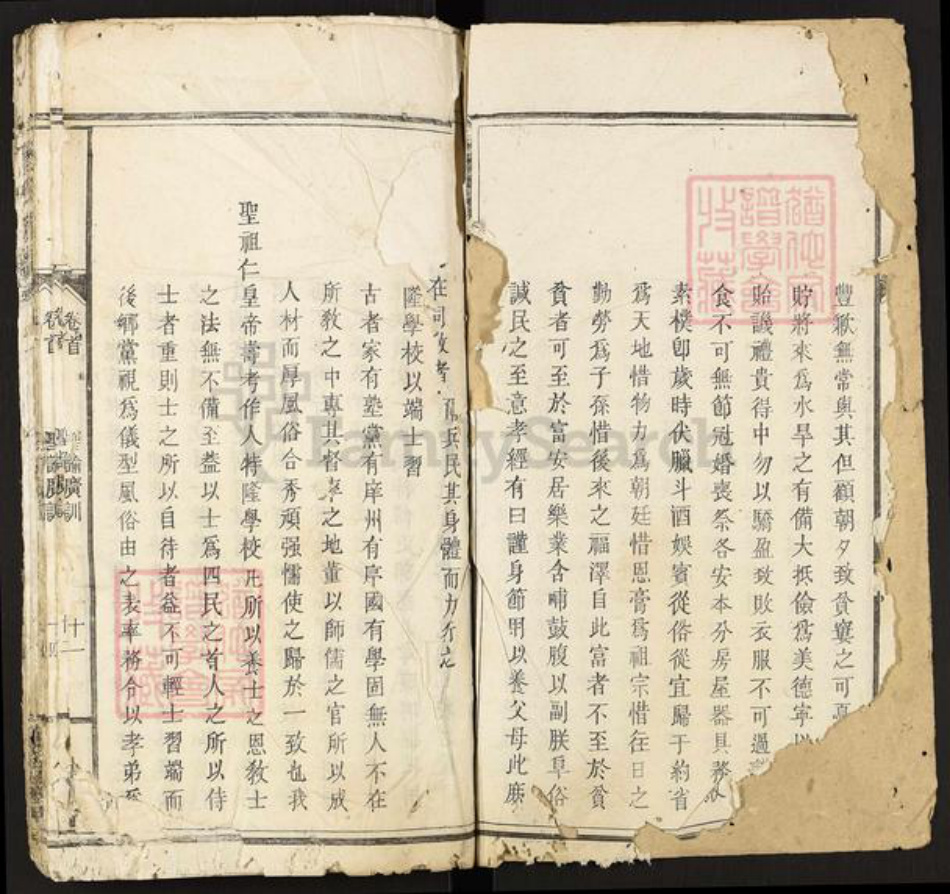 豐歉無常與其但顧朝夕致貧窶之可
貯將來為水旱之有備大抵儉為美德寧以
貽譏禮貴得中勿以驕盈致敗衣服不可過
食不可無節冠婚喪祭各安本分房屋器具務
素樸即歲時伏臘斗酒娛賓從俗從宜歸于約省
為天地惜物力為朝廷惜恩膏為祖宗惜往日之
勤勞為子孫惜後來之福澤自此富者不至於貧
貧者可至於富安居樂業含哺鼓腹以副朕阜俗
誠民之至意孝經有曰謹身節用以養父母此庶
在 兵民其身體而力行之
隆學校以端士習
古者家有塾黨有庠州有序國有學固無人不在
所教之中專其督率之地董以師儒之官所以成
人材而厚風俗合秀頑强懦使之歸於一致也我
聖祖仁皇帝壽考作人特隆學校凡所以養士之恩教士
之法無不備至蓋以士為四民之首人之所以待
士者重則士之所以自待者益不可輕士習端而
後鄉黨視為儀型風俗由之表率務令以孝弟
卷首
聖諭廣訓
十二
FamilySearch